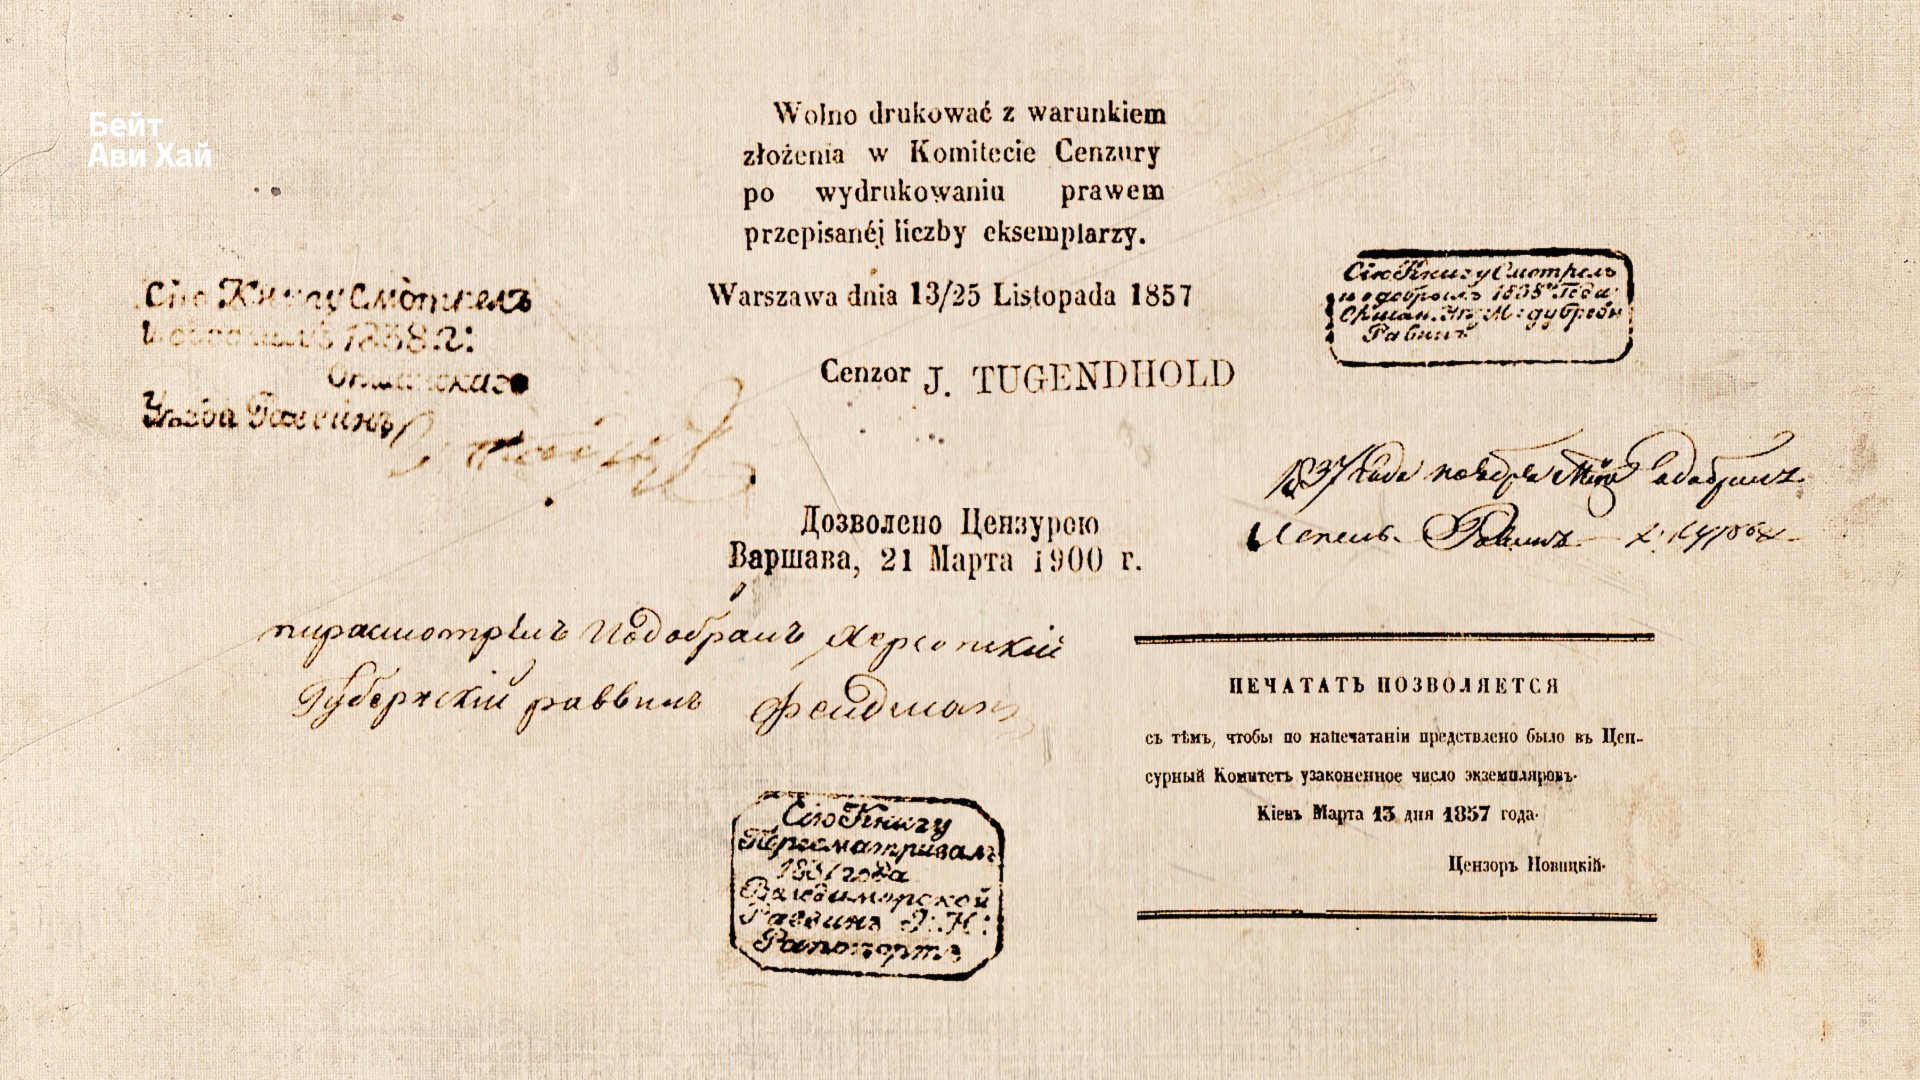 Бейт
Ави Хай
Wolno drukować z warunkiem
złożenia w Komitecie Cenzury
po wydrukowaniu prawem
przepisanéj liczby eksemplarzy.
Warszawa dnia 13/25 Listopada 1857
Cenzor J. TUGENDHOLD
Сію Книгу Смотрелъ
1838 г:
Уѣзда Раввинъ
Сію Книгу Смотрелъ
и одобрилъ 1838 Года
Равинъ
1837 Года ноября
Лепель. Равинъ
Дозволено Цензурою
Варшава, 21 Марта 1900 г.
пирасмотрѣлъ Иодобралъ Херсонскій
Губернскій раввинъ Фейдман
ПЕЧАТАТЬ ПОЗВОЛЯЕТСЯ
съ тѣмъ, чтобы по напечатаніи предствлено было въ Цен-
сурный Комитетъ узаконенное число экземпляровъ.
Кіевъ Марта 13 дня 1857 года.
Цензоръ Новицкій.
Сію Книгу
Пересматривалъ
1837 года
Валодиморской
Раввинъ Я: Н:
Рапопортъ